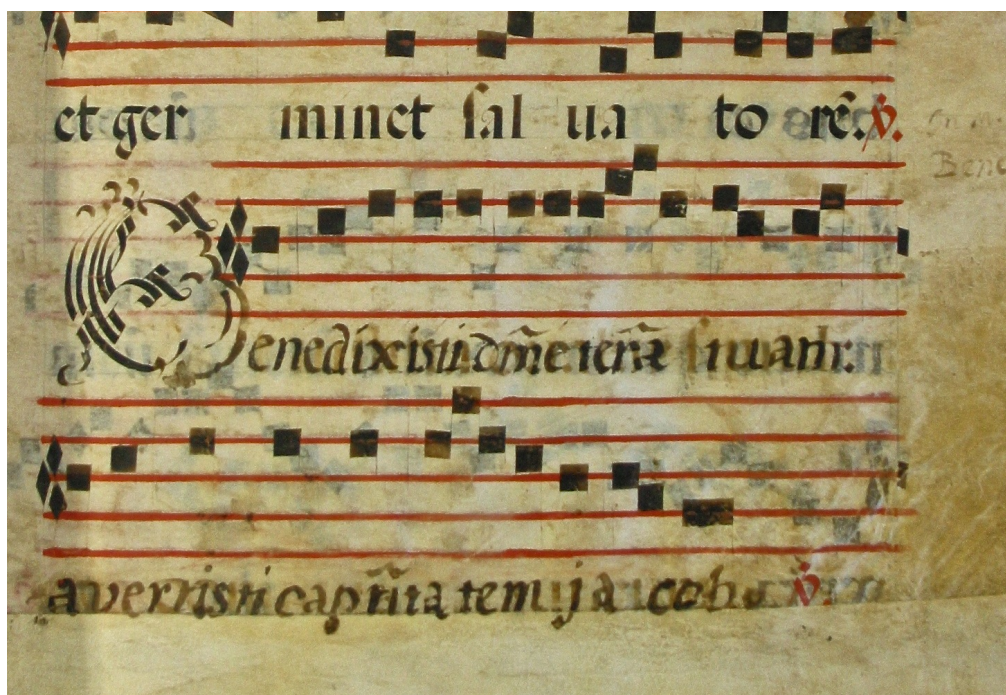 et ger minet sal ua to rē. ℣.
Benedixisti dm̃e terrã tuam.
avertisti captĩuita tem ja cob ℣.